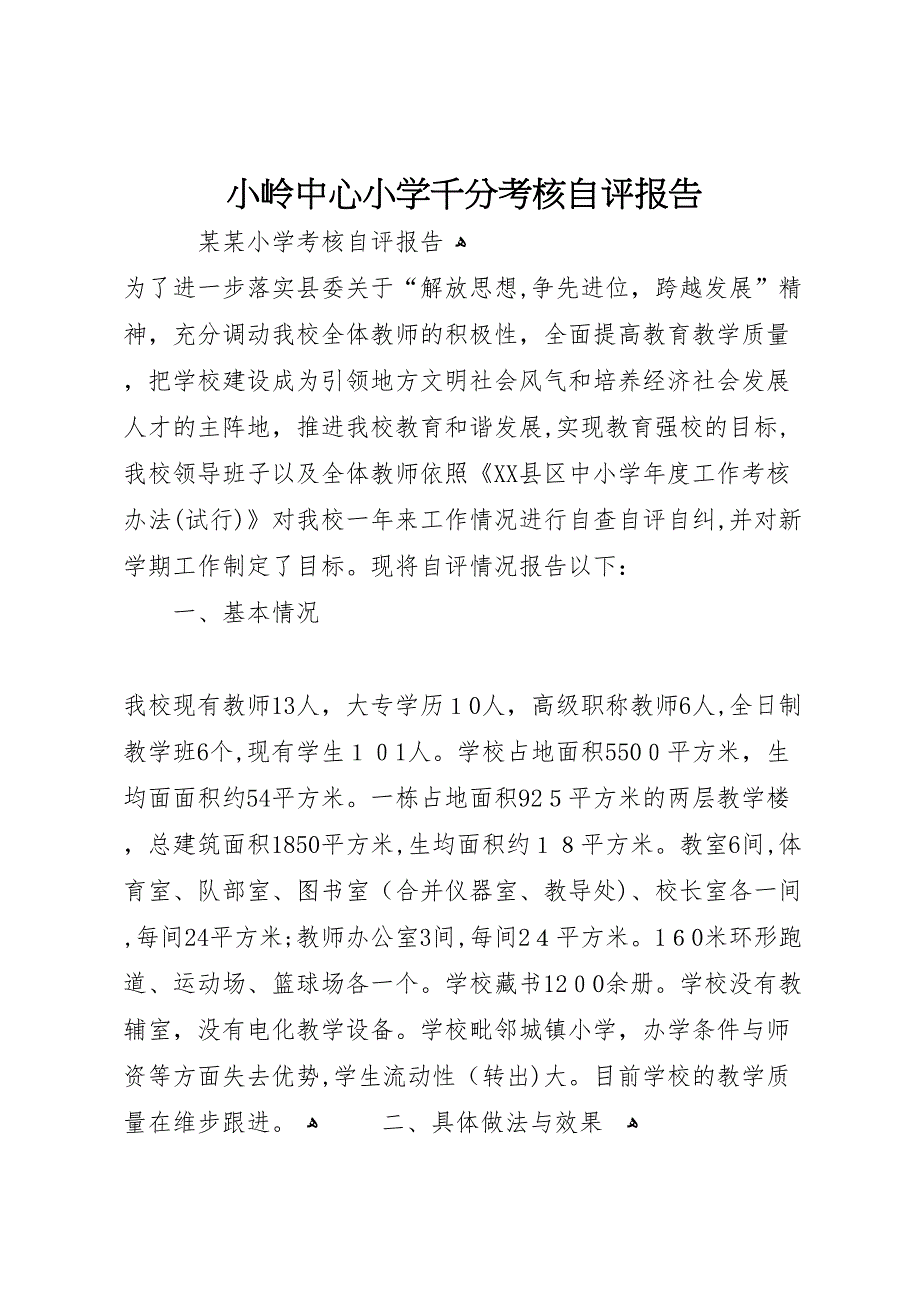 小岭中心小学千分考核自评报告
某某小学考核自评报告 ﻫ
为了进一步落实县委关于“解放思想,争先进位，跨越发展”精
神，充分调动我校全体教师的积极性，全面提高教育教学质量
，把学校建设成为引领地方文明社会风气和培养经济社会发展
人才的主阵地，推进我校教育和谐发展,实现教育强校的目标,
我校领导班子以及全体教师依照《XX县区中小学年度工作考核
办法(试行)》对我校一年来工作情况进行自查自评自纠,并对新
学期工作制定了目标。现将自评情况报告以下：
一、基本情况
我校现有教师13人，大专学历１0人，高级职称教师6人,全日制
教学班6个,现有学生１０1人。学校占地面积550０平方米，生
均面面积约54平方米。一栋占地面积92５平方米的两层教学楼
，总建筑面积1850平方米,生均面积约１８平方米。教室6间,体
育室、队部室、图书室（合并仪器室、教导处)、校长室各一间
,每间24平方米;教师办公室3间,每间2４平方米。1６0米环形跑
道、运动场、篮球场各一个。学校藏书12０0余册。学校没有教
辅室，没有电化教学设备。学校毗邻城镇小学，办学条件与师
资等方面失去优势,学生流动性（转出)大。目前学校的教学质
量在维步跟进。 ﻫ 二、具体做法与效果 ﻫ